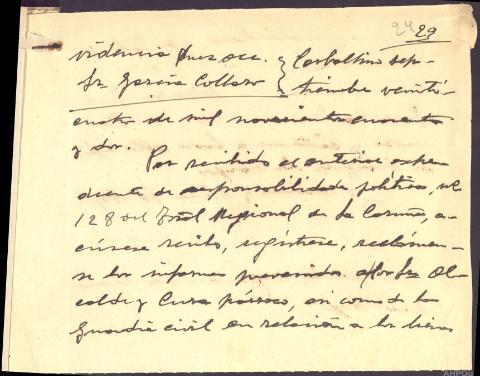 29 29
videncia Juez acc. } Carballino sep-
Sr. García Collazo } tiembre veinti-
cuatro de mil novecientos cuarenta
y dos.
Por recibido el anterior expe
diente de responsabilidades políticas, nº
128 del Tral Regional de La Coruña, a-
cúsese recibo, regístrese, reclámen-
se los informes prevenidos a los Srs Al
calde y Cura párroco, así como de la
Guardia civil en relación a los bienes